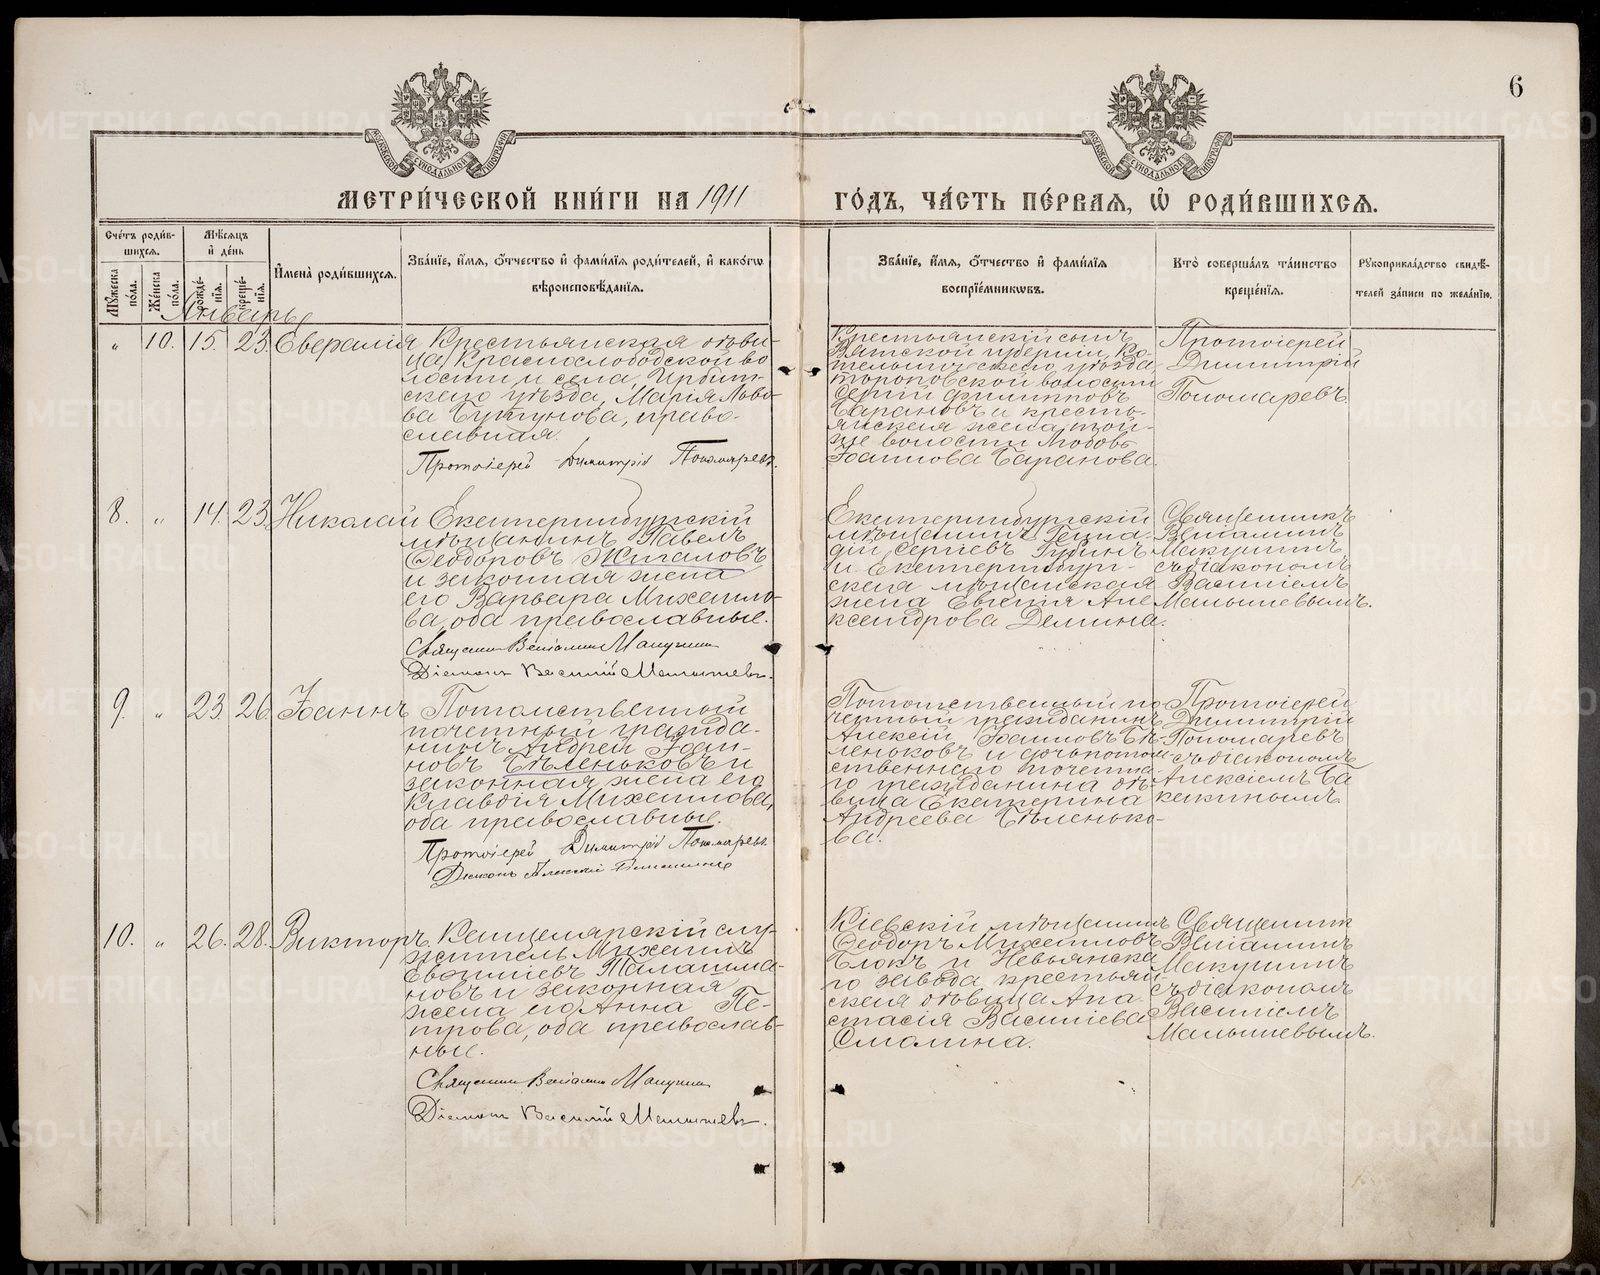 6
МЕТРИЧЕСКОЙ КНИГИ НА 1911 ГОДЪ, ЧАСТЬ ПЕРВАЯ, Ѡ РОДИВШИХСЯ.
Счетъ родив-
шихся.
Мужеска
пола.
Женска
пола.
Мѣсяцъ
и день
рожде-
нія.
креще-
нія.
Имена родившихся.
Званіе, имя, отчество и фамилія родителей, и какогѡ
вѣроисповѣданія.
Званіе, имя, отчество и фамилія
воспріемникѡвъ.
Кто совершалъ таинство
крещенія.
Рукоприкладство свидѣ-
телей записи по желанію.
Январь
" 10. 15. 23. Евералія
Крестьянская дѣви-
ца Краснослободской во
лости и села, Ирбит-
скаго уѣзда, Марія Льво-
ва Бутунова, право-
славная.
Протоіерей Димитрій Пономаревъ.
Крестьянскій сынъ
Вятской губерніи, Ко-
тельнич скаго уѣзда
тороповской волости
Сергій Филипповъ
Барановъ и кресть-
янская жена той-
же волости Любовь
Іоаннова Баранова.
Протоіерей
Димитрій
Пономаревъ.
8. " 14. 23. Николай
Екатеринбургскій
мѣщанинъ Павелъ
Ѳеодоровъ Жигаловъ
и законная жена
его Варвара Михаило-
ва, оба православные.
Священникъ Веніаминъ Макушинъ
Діаконъ Василій Малышевъ.
Екатеринбургскій
мѣщанинъ Генна-
дій Сергіевъ Губинъ
и Екатеринбург-
ская мѣщанская
жена Евгенія Але
ксандрова Демина.
Священникъ
Веніаминъ
Макушинъ
съ діакономъ
Василіемъ
Малышевымъ.
9. " 23. 26. Іоаннъ
Потомственный
почетный гражда-
нинъ Андрей Іоан-
новъ Бѣленьковъ и
законная жена его
Клавдія Михаилова,
оба православные.
Протоіерей Димитрій Пономаревъ
Діаконъ Алексій
Потомственный по-
четный гражданинъ
Алексій Іоанновъ Бѣ-
леньковъ и дочь потом
ственнаго почетна-
го гражданина дѣ-
вица Екатерина
Андреева Бѣленько-
ва.
Протоіерей
Димитрій
Пономаревъ
съ діакономъ
Алексіемъ Ба
какинымъ.
10. " 26. 28. Викторъ
Канцелярскій слу-
житель Михаилъ
Евѳиміевъ Талашма-
новъ и законная
жена его Анна Пе-
трова, оба православ-
ные.
Священникъ Веніаминъ Макушинъ
Діаконъ Василій Малышевъ.
Кіевскій мѣщанинъ
Ѳеодоръ Михаиловъ
Блокъ и Невьянска
го завода крестьян
ская дѣвица Ана
стасія Василіева
Смолина.
Священникъ
Веніаминъ
Макушинъ
съ діакономъ
Василіемъ
Малышевымъ.
METRIKI.GASO-URAL.RU